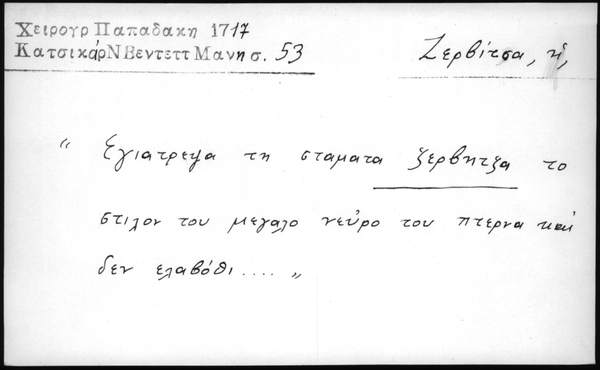 Χειρογρ Παπαδακη 1717
ΚατσικάρΝ Βεντεττ Μανη σ. 53
Ζερβίτσα, ἡ,
“ Εγιατρεψα τη σταματα ζερβητζα το
στιλον του μεγαλο νεῦρο του πτερνα και
δεν ελαβόθι .... „